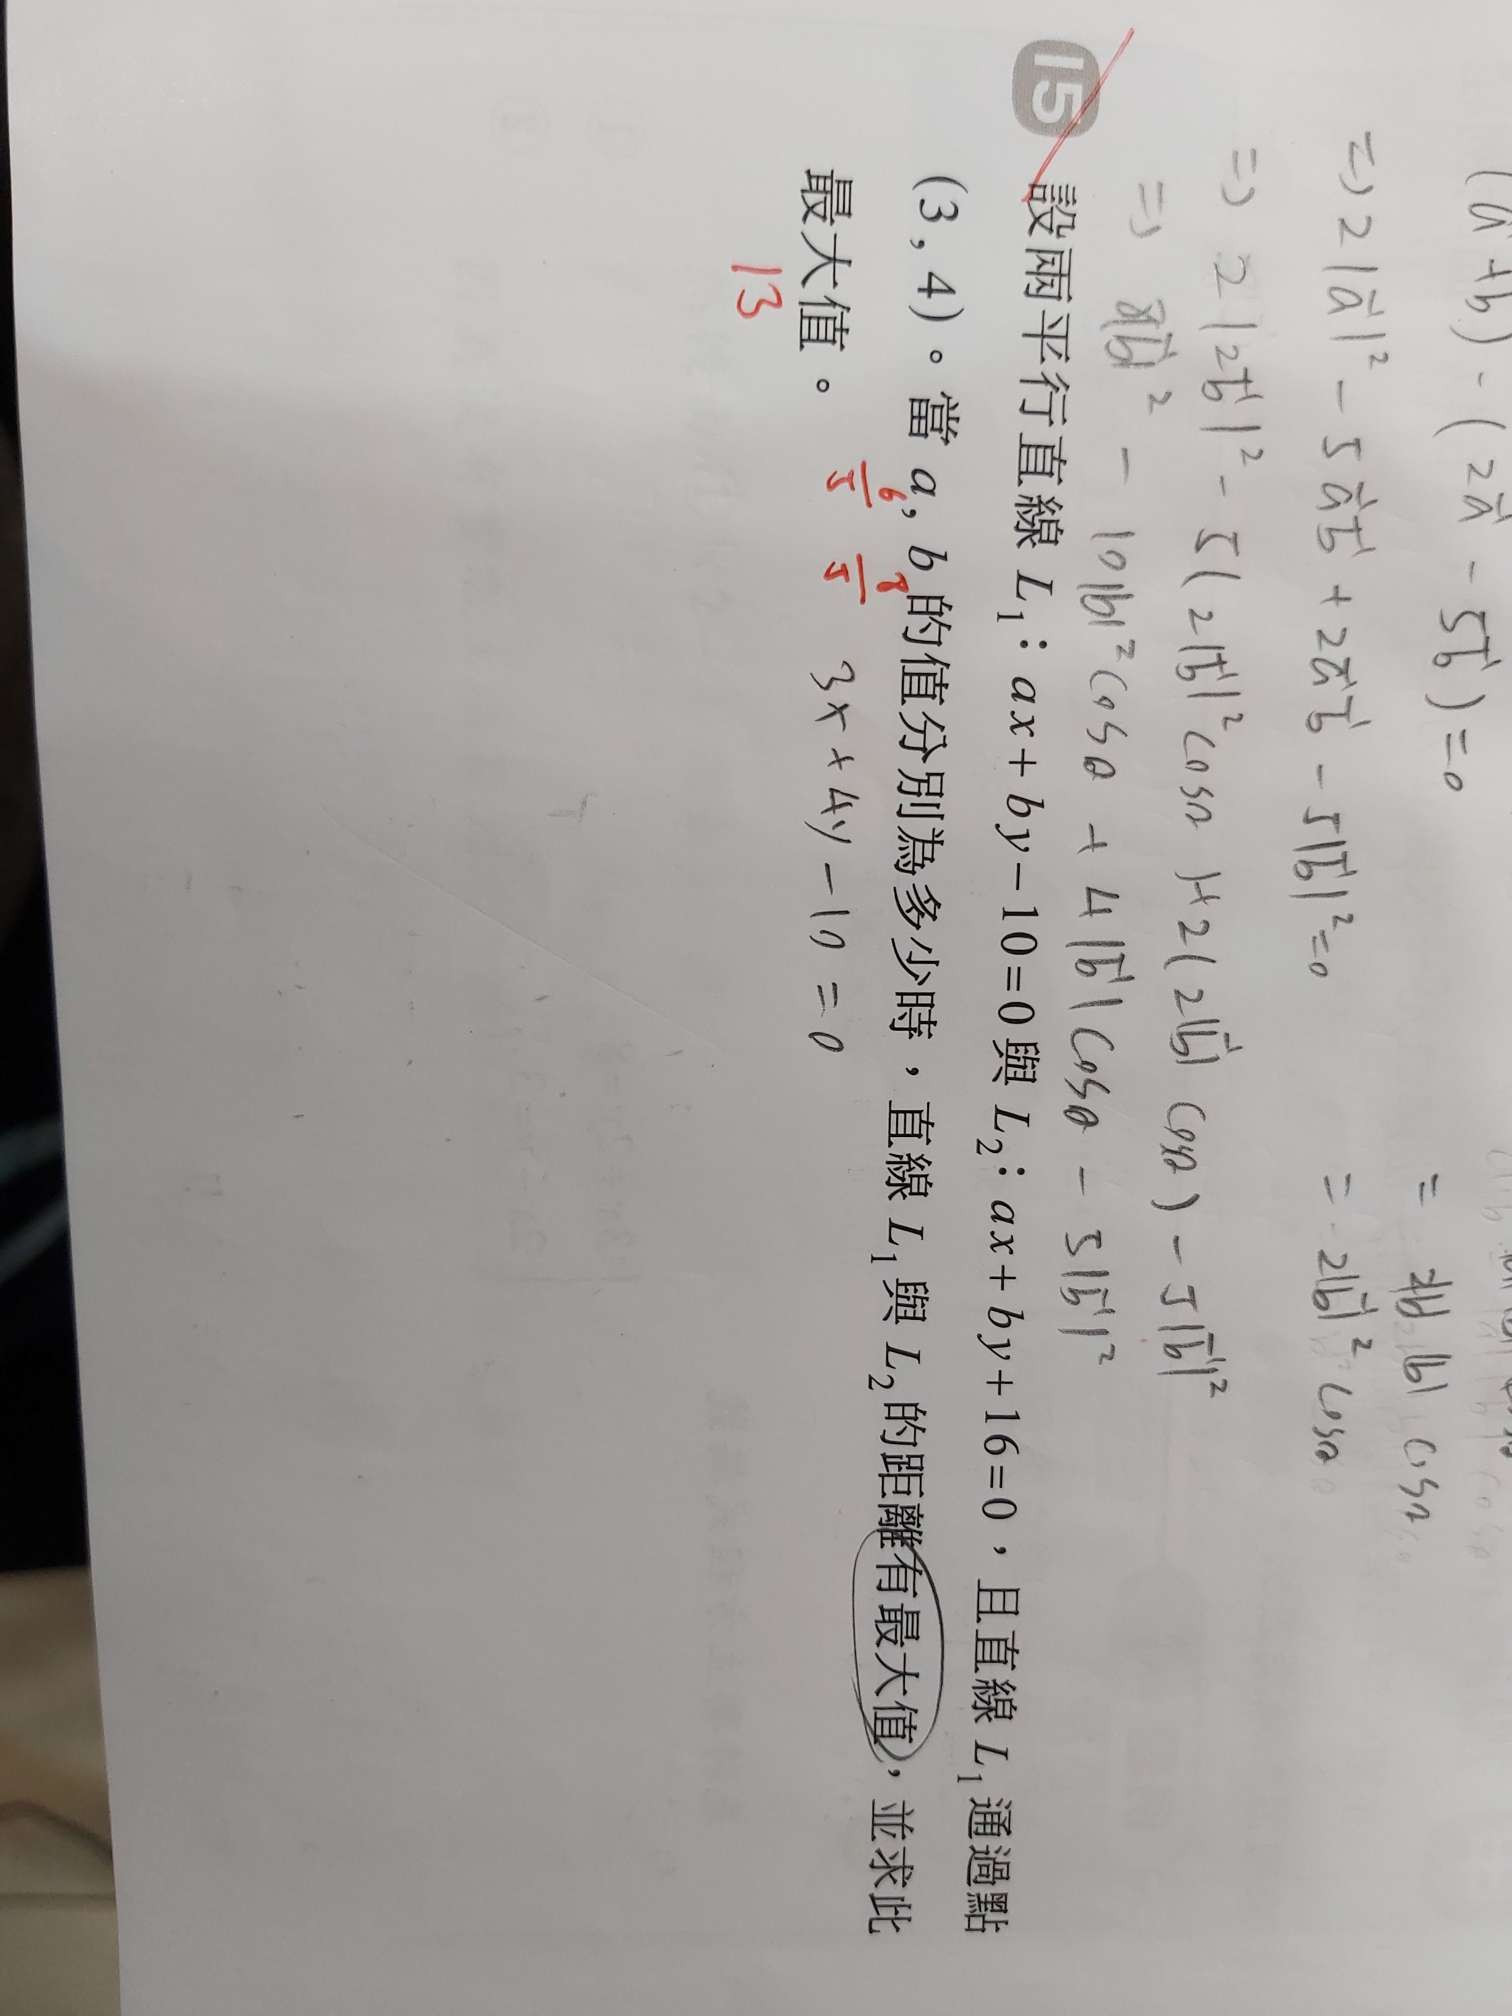 (a⃗+b⃗)·(2a⃗-5b⃗)=0
⇒2|a⃗|²-5a⃗b⃗+2a⃗b⃗-5|b⃗|²=0
= 2|b⃗|²cosθ
⇒ 2|2b⃗|²-5(2|b⃗|²cosθ)+2(2|b⃗|cosθ)-5|b⃗|²
⇒ 8|b⃗|²-10|b|²cosθ+4|b⃗|cosθ-5|b⃗|²
15 設兩平行直線 L₁：ax+by-10=0與 L₂：ax+by+16=0，且直線 L₁ 通過點
(3,4)。當 a, b 的值分別為多少時，直線 L₁ 與 L₂ 的距離有最大值，並求此
6/5 8/5
最大值。
3x+4y-10=0
13